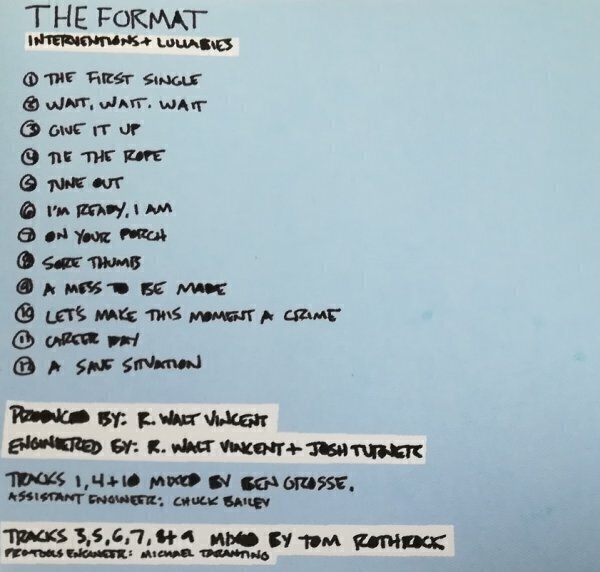 THE FORMAT
INTERVENTIONS + LULLABIES
1 THE FIRST SINGLE
2 WAIT, WAIT. WAIT
3 GIVE IT UP
4 TIE THE ROPE
5 TUNE OUT
6 I'M READY, I AM
7 ON YOUR PORCH
8 SORE THUMB
9 A MESS TO BE MADE
10 LET'S MAKE THIS MOMENT A CRIME
11 CAREER DAY
12 A SAVE SITUATION
PRODUCED BY: R. WALT VINCENT
ENGINEERED BY: R. WALT VINCENT + JOSH TURNER
TRACKS 1, 4 + 10 MIXED BY BEN GROSSE.
ASSISTANT ENGINEER: CHUCK BAILEY
TRACKS 3, 5, 6, 7, 8 + 9 MIXED BY TOM ROTHROCK
PROTOOLS ENGINEER: MICHAEL TARANTINO